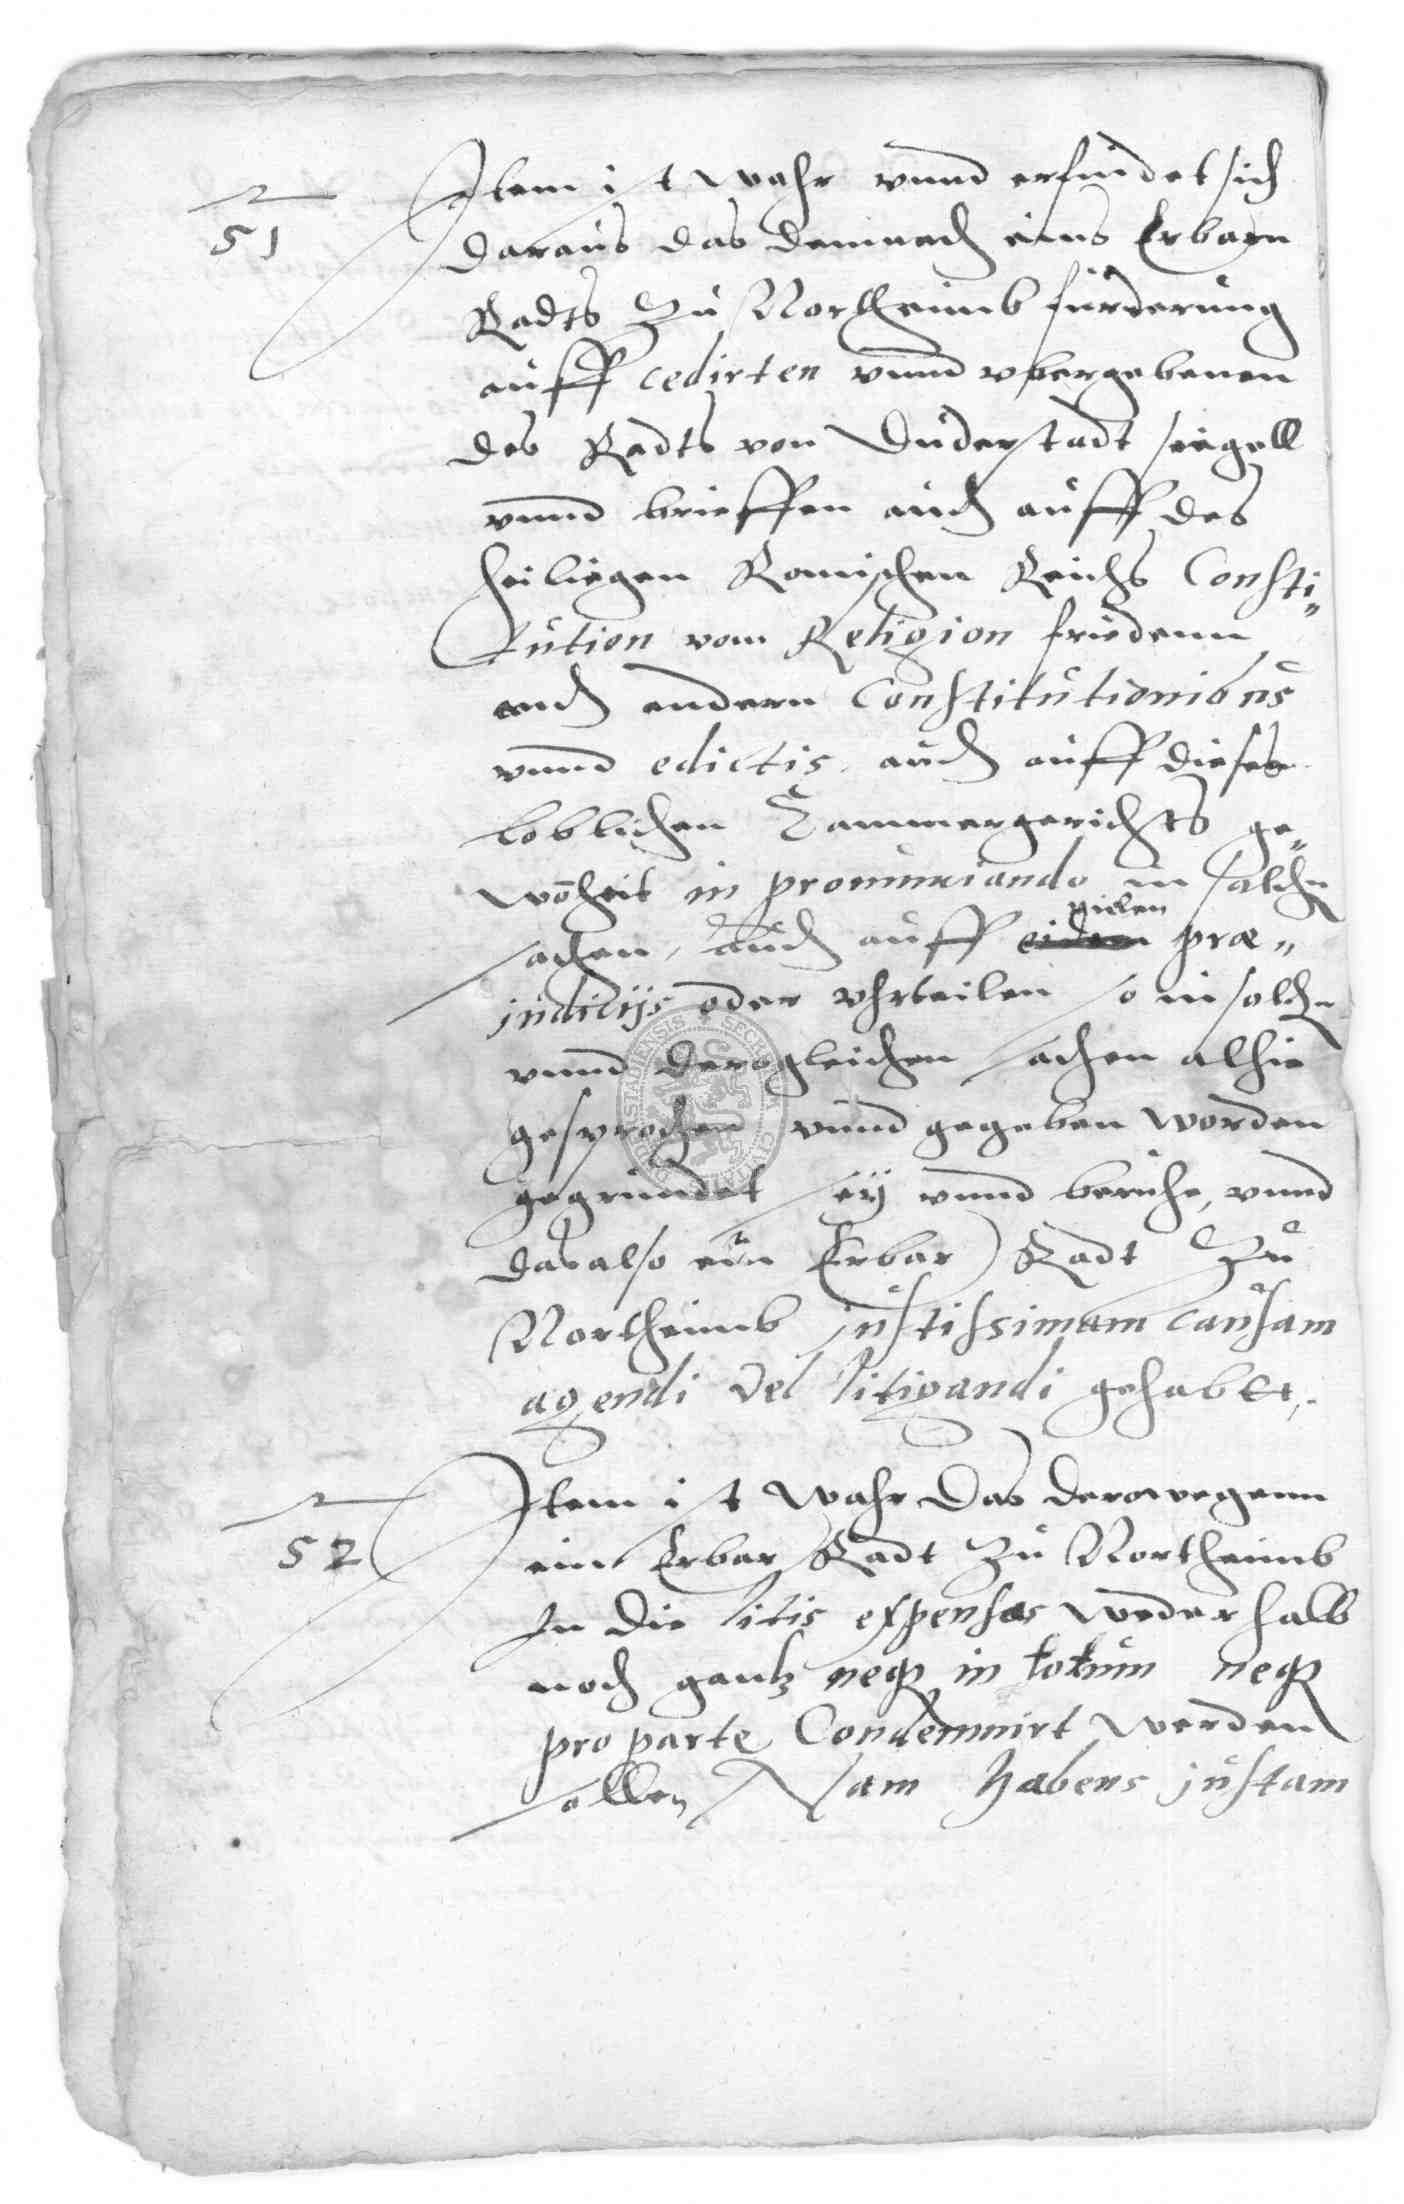 51
Item ist wahr vnnd erfindet sich
daraus das demnach eins Erbarn
Radts zu Northeimb furderung
auff cedirten vnnd vbergebenen
des Radts von Duderstadt siegell
vnnd brieffen auch auff des
heiliegen Romischen Reichs Consti„
tution vom Religion friedenn
auch andern Constitutionibus
vnnd edictis, auch auff dieses
loblichen Cammergerichts ge„
wonheit in pronunciando in solchen
sachen, auch auff vielen præ„
judicijs oder vhrteilen so in solchen
vnnd dergleichen sachen alhie
gesprochen vnnd gegeben worden
gegrundet sey vnnd beruhe, vnnd
das also ein Erbar Radt zu
Northeimb justissimam causam
agendi vel litigandi gehabtt,.
52
Item ist wahr das derowegenn
ein Erbar Radt zu Northeimb
In die litis expensas weder halb
noch gantz neq in totum neq
pro parte Condemnirt werden
sollen Nam habens justam